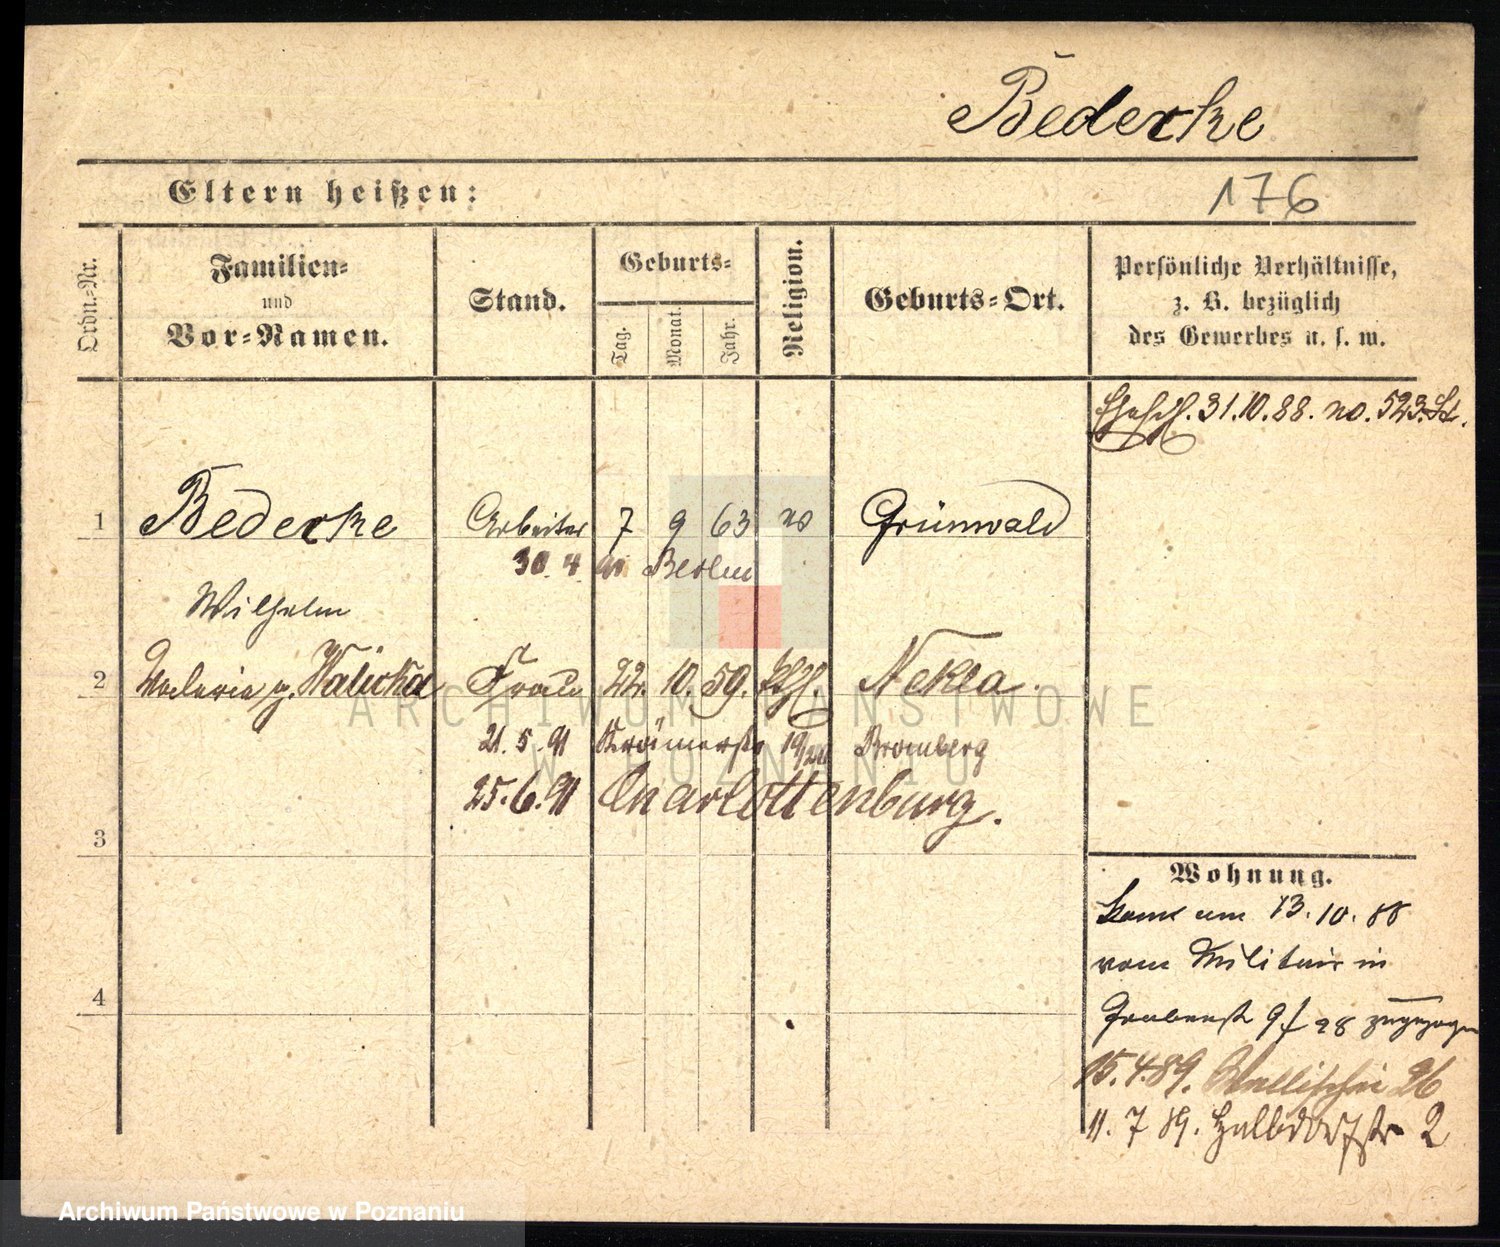 Bederke
Eltern heißen:
176
Ordn.-Nr.
Familien-
und
Vor-Namen.
Stand.
Geburts-
Tag.
Monat.
Jahr.
Religion.
Geburts-Ort.
Persönliche Verhältnisse,
z. B. bezüglich
des Gewerbes u. s. w.
31.10.88. no. 523.
1 Bederke Arbeiter 7 9 63 Grünwald
30. 4. Berlin
Wilhelm
2 Valeria g. Walicka Frau 22. 10. 59. kth. Nekla.
21. 5. 91 Krämerstr 19/20 Bromberg
25. 6. 91 Charlottenburg.
3
4
Wohnung.
kam am 13. 10. 88
vom Militair in
Grabenstr 9 zugezogen
15. 4. 89. Wallischei 26
11. 7 89. Halbdorfstr 2
ARCHIWUM PAŃSTWOWE
W POZNANIU
Archiwum Państwowe w Poznaniu